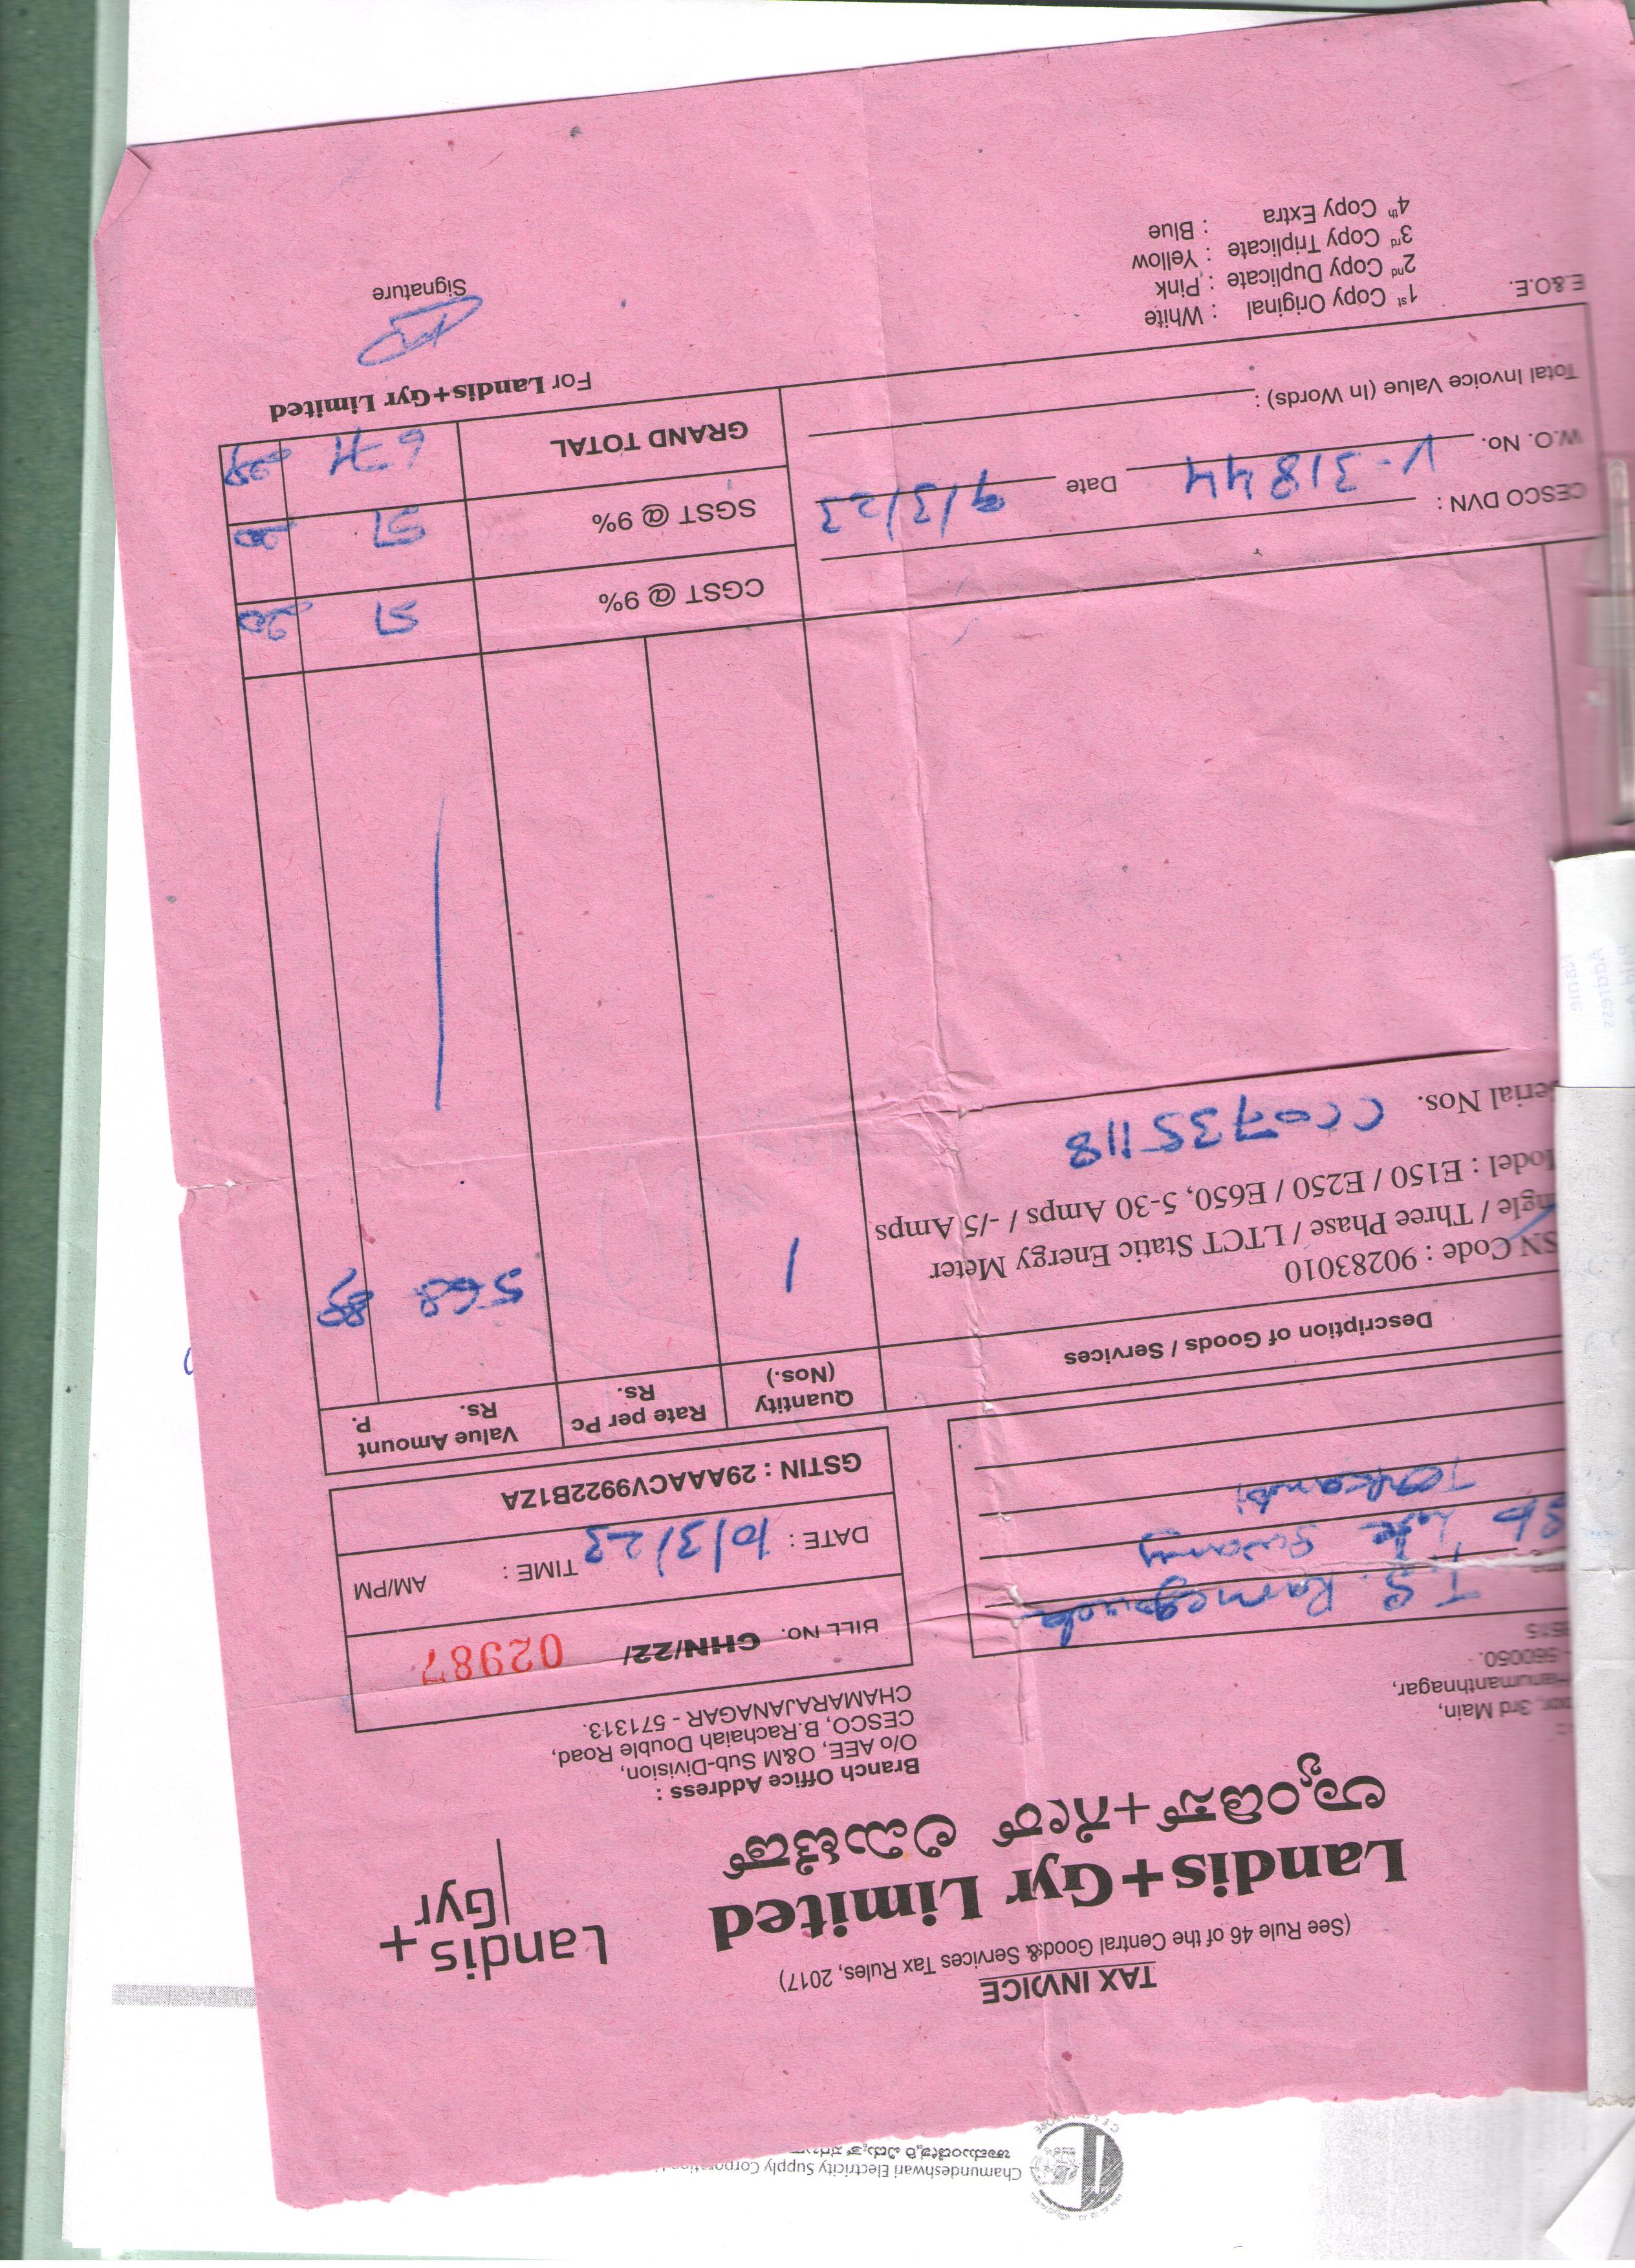 TAX INVOICE
(See Rule 46 of the Central Goods & Services Tax Rules, 2017)
Landis+Gyr Limited
ಲ್ಯಾಂಡಿಸ್+ಗೇರ್ ಲಿಮಿಟೆಡ್
Landis+
Gyr
oor, 3rd Main,
Hanumanthnagar,
- 560050.
9515
Branch Office Address :
O/o AEE, O&M Sub-Division,
CESCO, B.Rachaiah Double Road,
CHAMARAJANAGAR - 571313.
T.S. Ramegowda
S/o Late Swamy
BILL NO. CHN/22/ 02987
DATE : 10/3/23 TIME : AM/PM
GSTIN : 29AAACV9922B1ZA
Description of Goods / Services
Quantity (Nos.)
Rate per Pc Rs.
Value Amount Rs. P.
SN Code : 90283010
ngle / Three Phase / LTCT Static Energy Meter
Model : E150 / E250 / E650, 5-30 Amps / -/5 Amps
Serial Nos. CC0735118
1 568
CGST @ 9% 51 20
SGST @ 9% 51 20
GRAND TOTAL 671
CESCO DVN :
W.O. No. V-31844 Date 9/3/23
Total Invoice Value (In Words) :
E.&O.E.
1st Copy Original : White
2nd Copy Duplicate : Pink
3rd Copy Triplicate : Yellow
4th Copy Extra : Blue
For Landis+Gyr Limited
Signature
Chamundeshwari Electricity Supply Corporation
Name
Address